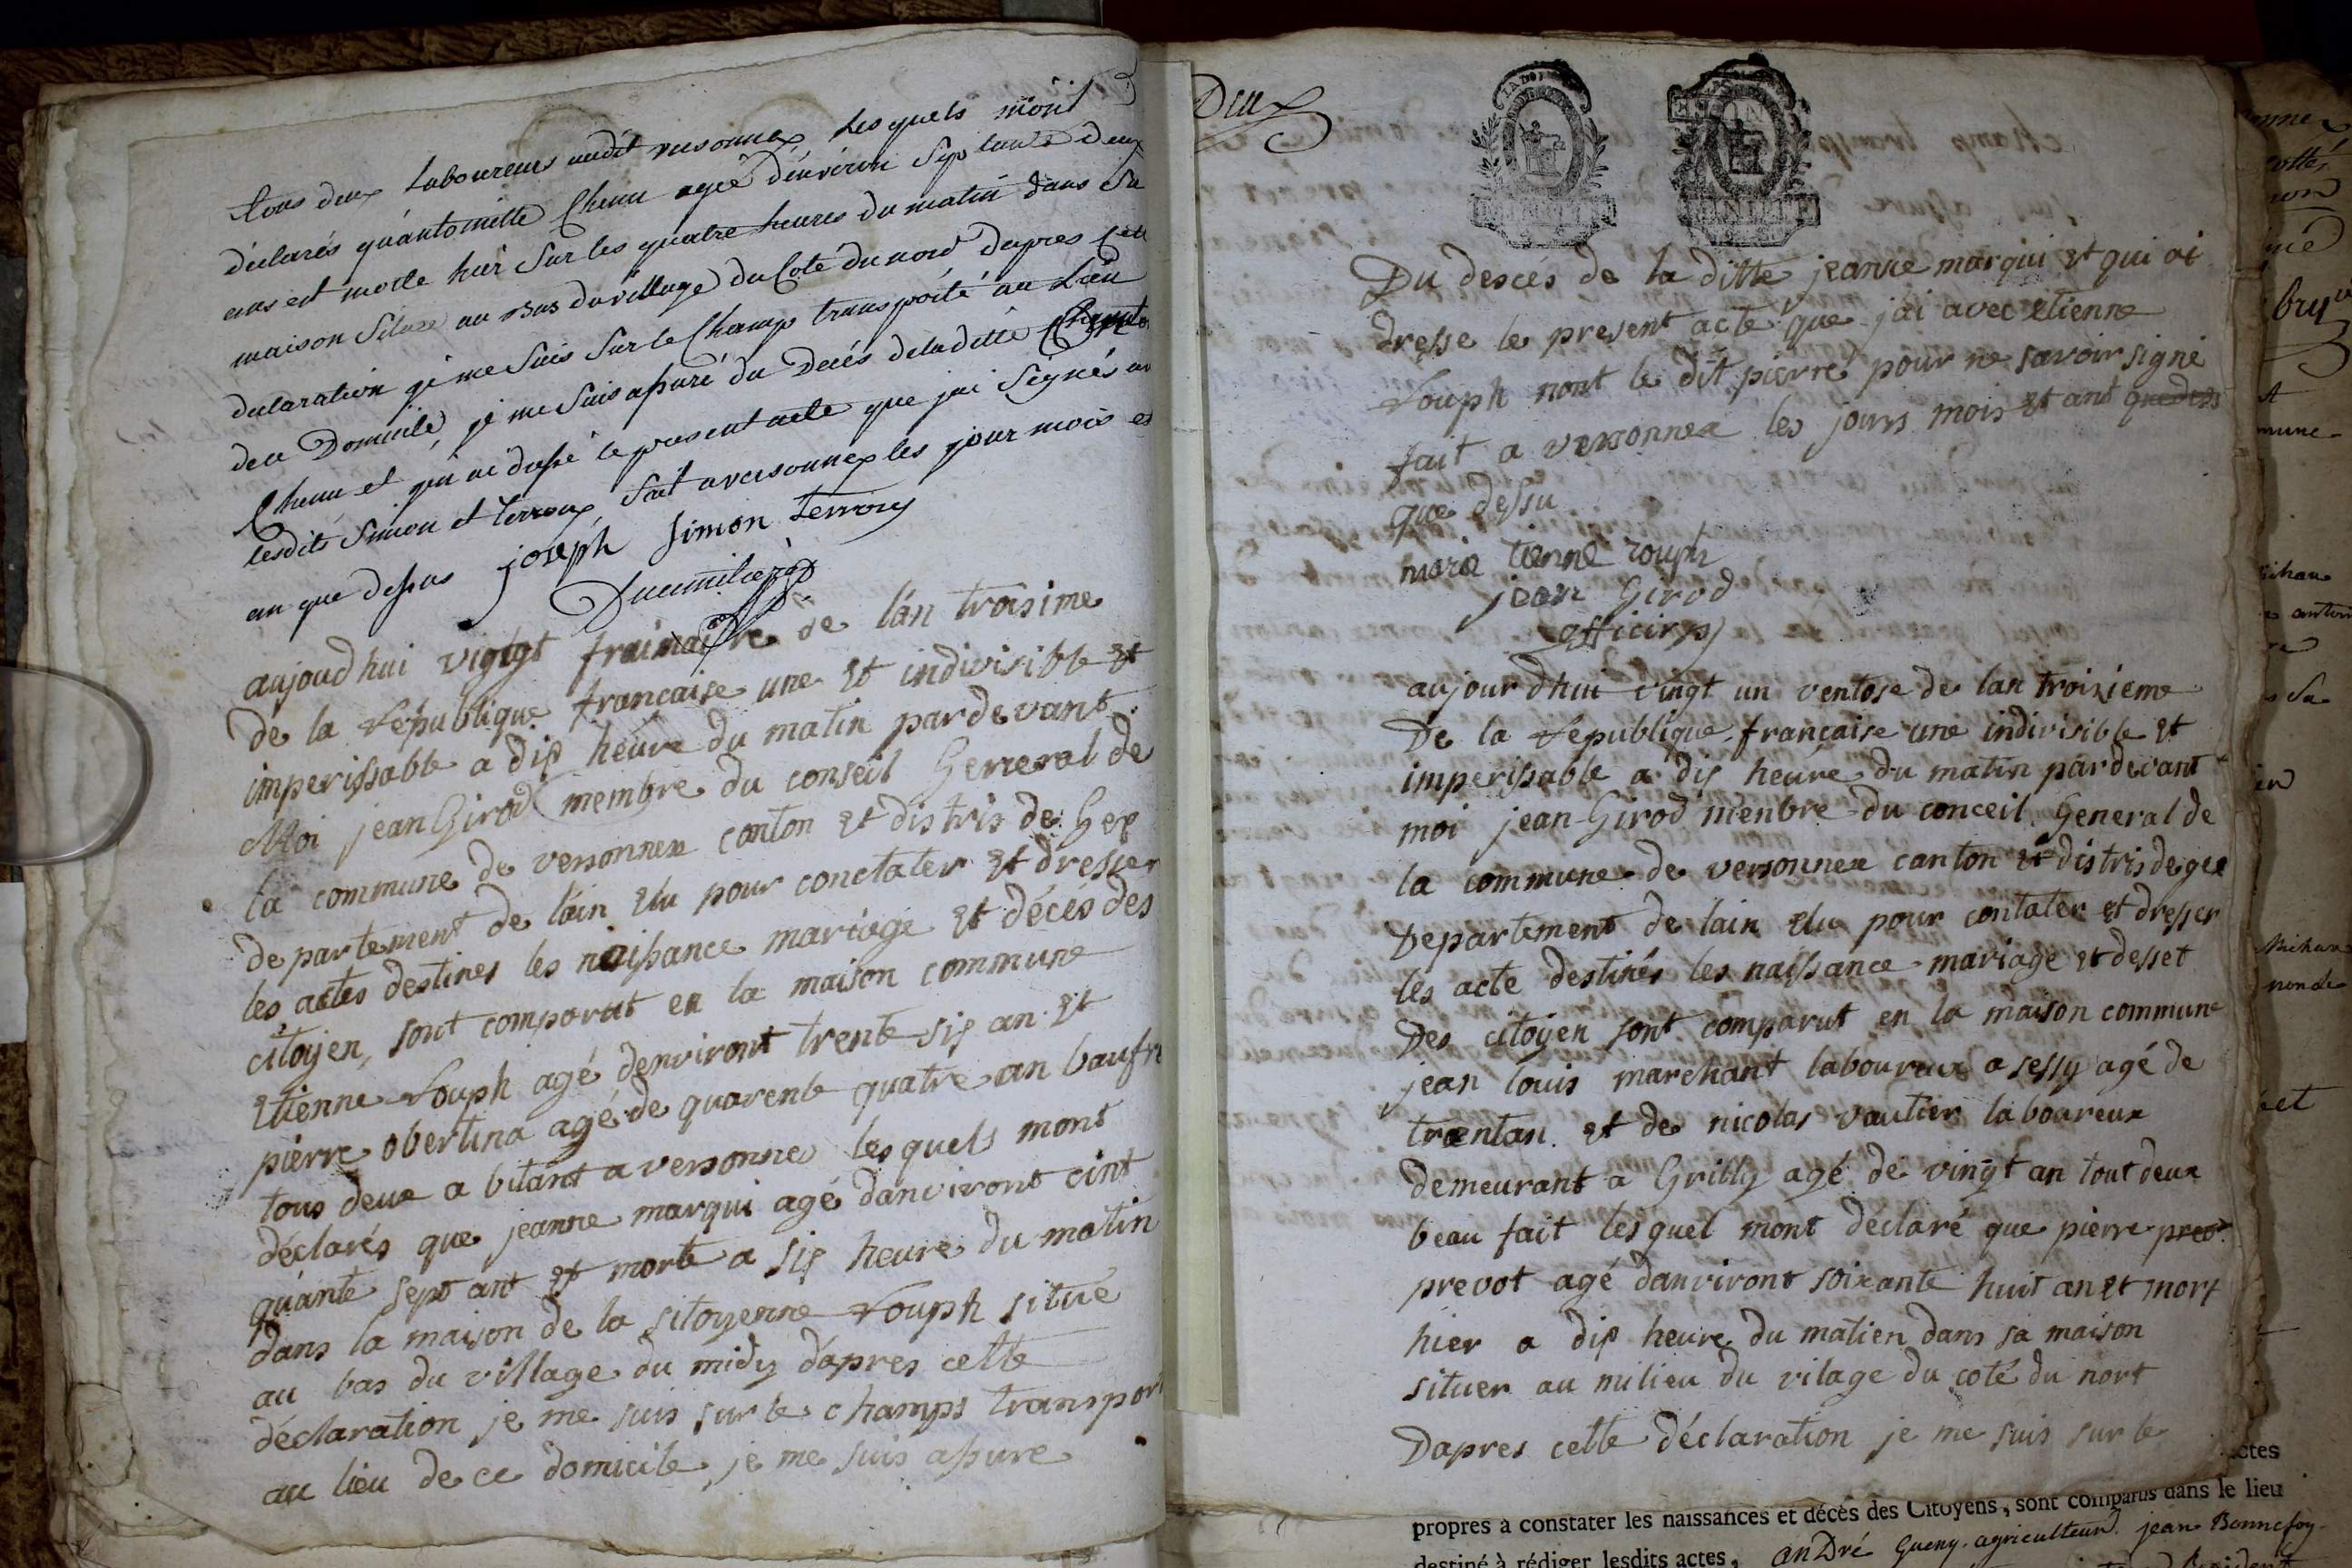 tous deux Laboureurs audit versonnex Lesquels m'ont
déclarés qu'antoinette Chenu agée d'énviron Septante deux
ans est morte hier Sur les quatre heures du matin dans Sa
maison Située au Bas du village du Coté du nord dapres Cette
declaration je me Suis Sur le Champ transporté au Lieu
de ce Domicile, je me Suis assuré du Decés de la ditte
Chenu et qui ai dressé le present acte que jaiSégnés avec
lesdits Simon et terroux, fait a versonnex les jour mois et
an que dessus joseph Simon terroux
Ducimetière
aujoud hui vigtgt fraimaire de lán troisime
de la république francaise une et indivisible et
imperissable a dix heure du matin pardevant
Moi jean Girod membre du conseil Gerreral de
la commune de versonnex conton et distris de Gex
departement de láin élu pour conctater et dresser
les actes destines les naissance mariage et décés des
citoyen, sont comparut en la maison commune
etienne rouph agé denviront trente six an et
pierre obertina agé de quarente quatre an baufre
tous deux a bitant a versonnex lesquels mont
déclarés que jeanne marqui agé danviront cint
quante sept ant et morte a six heure du matin
dans la maison de la sitoyenne rouph situé
au bas du village du midy dápres cette
déclaration je me suis sur le champs transport
au lieu de ce domicile je me suis assure
Deux
Du descés de la ditte jeanne marqui et qui ai
dresse le present acte que jai avec etienne
rouph nont le dit pierre pour ne savoir signé
fait a versonnex les jours mois et ant quedess
que dessu
marie tienne rouph
jean Girod
officirs
aujour dhui vingt un ventose de lan troixieme
De la république française une indivisible et
imperissable a dix heure du matin pardevant
moi jean Girod menbre du conceil General de
la commune de versonnex canton et distris de gex
Departement de lain élu pour contater et dresser
les acte destinés les naissance mariage et desset
Des citoyen sont comparut en la maison commune
jean louis marchant laboureux a sessy agé de
trantan et de nicolas vautier laboureux
demeurant a Grilly agé de vingt an tout deux
beau fait lesquel mont déclaré que pierre preo
prevot agé danviront soixante huit an et mort
hier a dix heure du matien dans sa maison
situer au milieu du vilage du coté du nort
Dapres cette déclaration je me suis sur le
actes
propres à constater les naissances et décès des Citoyens, sont comparus dans le lieu
destiné à rédiger lesdits actes, andré Gueny agriculteur jean Bonnefoy